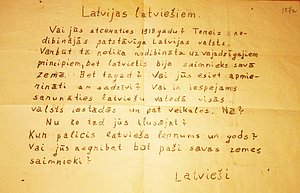 Latvijas latviešiem.
Vai jūs atceraties 1918 gadu? Toreiz no-
dibinājās patstāvīga Latvijas valsts.
Varbūt tā netika nodibināta uz vajadzīgajiem
principiem, bet latvietis bija saimnieks savā
zemē. Bet tagad? Vai jūs esiet apmie-
rināti ar sadzīvi? Vai ir iespējams
sarunāties latviešu valodā visās
valsts iestādēs un pat veikalos. Nē?
Nu ko tad jūs klusējat?
Kur palicis latvieša lepnums un gods?
Vai jūs negribat būt paši savas zemes
saimnieki?
Latvieši